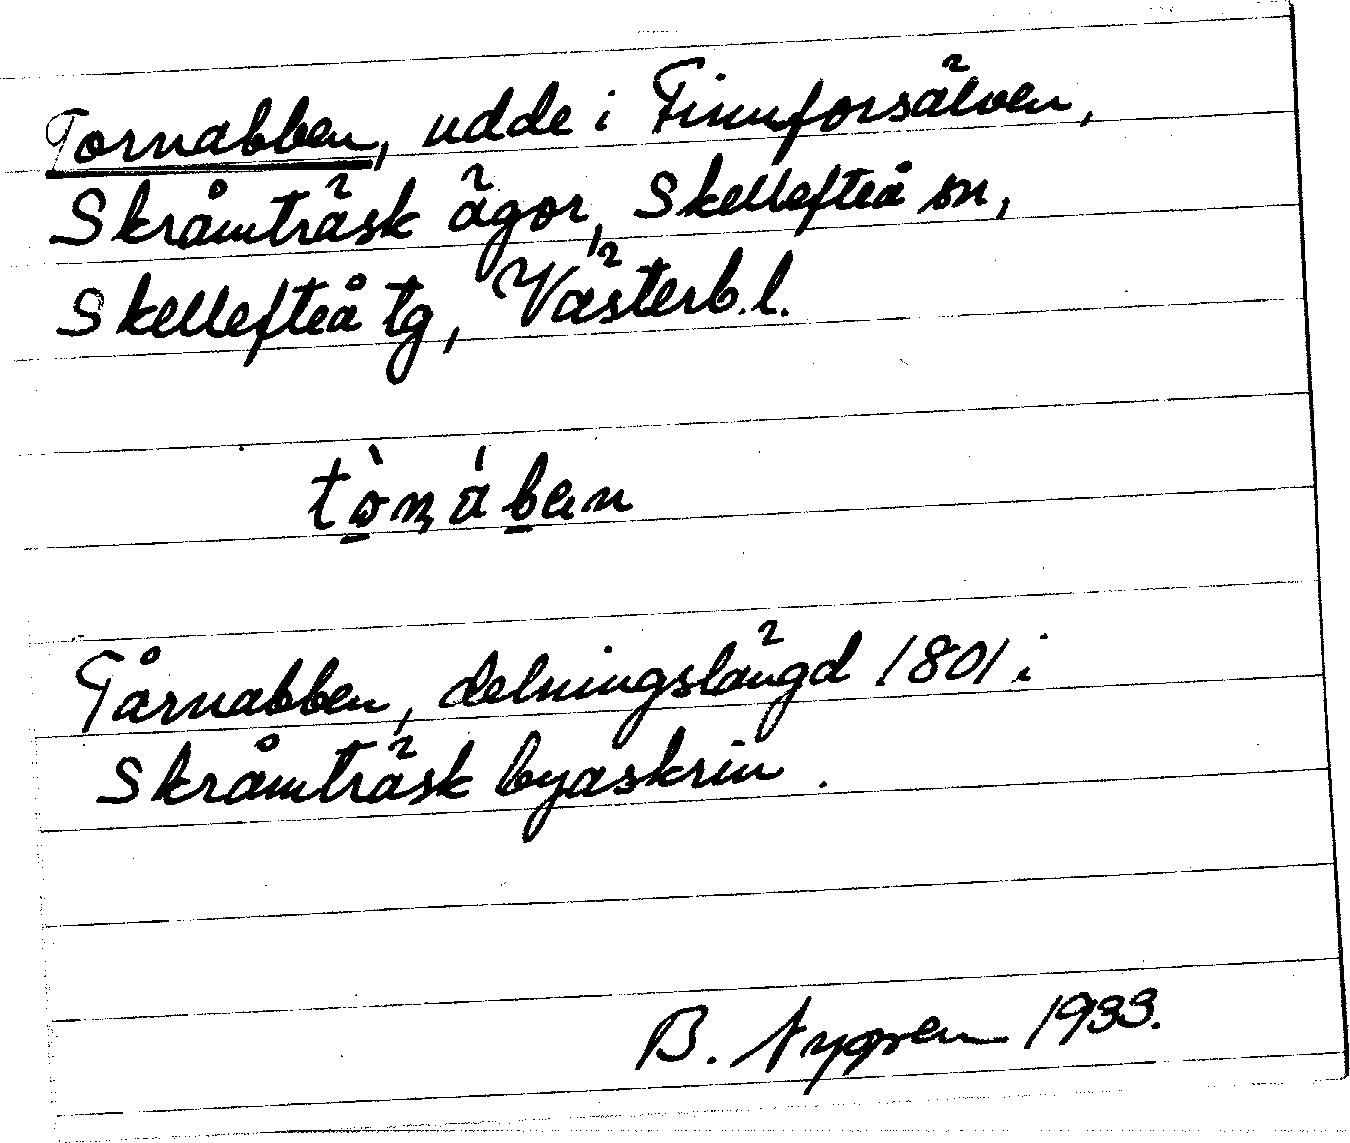 Tornabben, udde i Finnforsälven,
Skråmträsk ägor, Skellefteå sn,
Skellefteå tg, Västerb. l.
tò̱ɳáḇen
Tårnabben, delningslängd 1801 i
Skråmträsk byaskrin.
B. Nygren 1933.